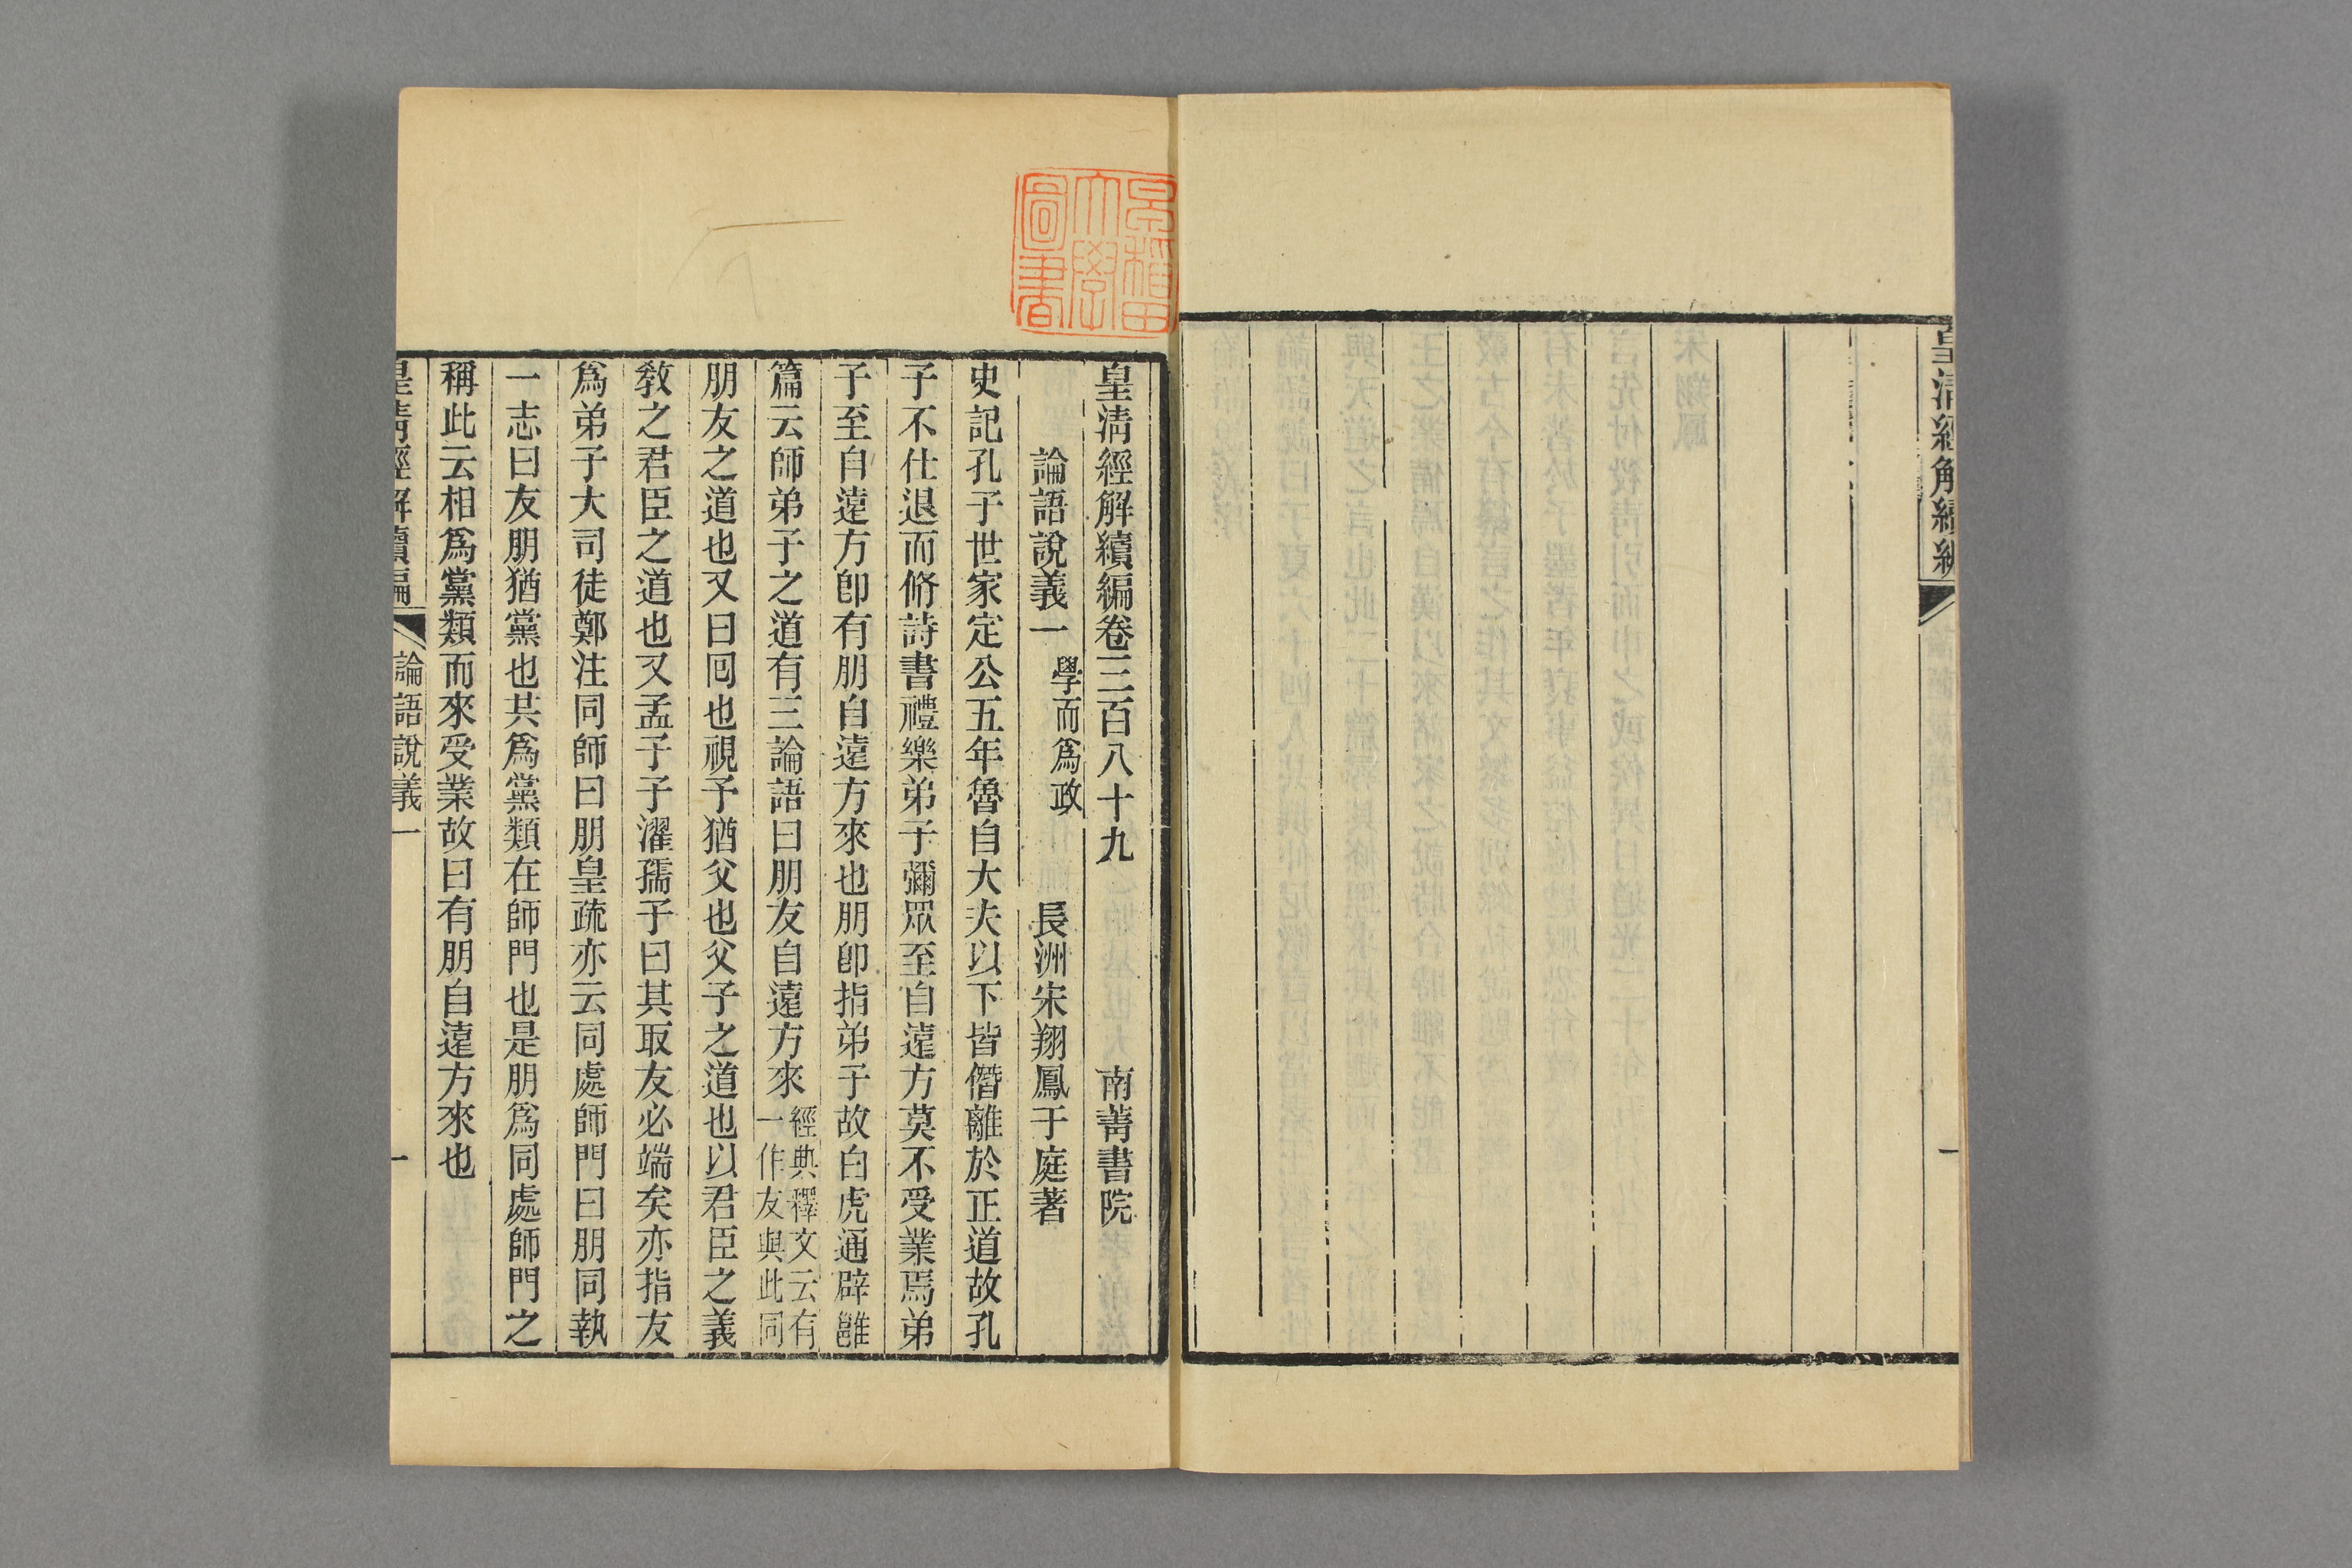 皇清經解續編
一
早稻田大學圖書
皇清經解續編卷三百八十九 南菁書院
論語說義一 學而爲政 長洲宋翔鳳于庭著
史記孔子世家定公五年魯自大夫以下皆僭離於正道故孔
子不仕退而脩詩書禮樂弟子彌眾至自遠方莫不受業焉弟
子至自遠方卽有朋自遠方來也朋卽指弟子故白虎通辟雝
篇云師弟子之道有三論語曰朋友自遠方來 經典釋文云有一作友與此同
朋友之道也又曰囘也視予猶父也父子之道也以君臣之義
敎之君臣之道也又孟子子濯孺子曰其取友必端矣亦指友
爲弟子大司徒鄭注同師曰朋皇疏亦云同處師門曰朋同執
一志曰友朋猶黨也共爲黨類在師門也是朋爲同處師門之
稱此云相爲黨類而來受業故曰有朋自遠方來也
皇清經解續編 論語說義一 一